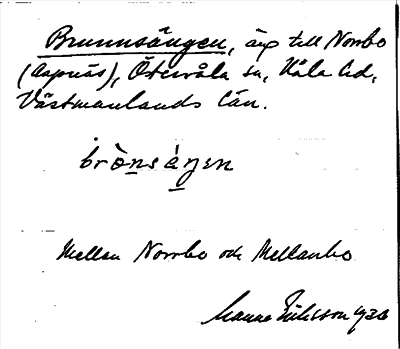 Brunnsängen, äng till Norrbo
(Aspnäs), Östervåla sn, Våla hd,
Västmanlands län.
brònsáŋen
Mellan Norrbo och Mellanbo
Manne Eriksson 1936